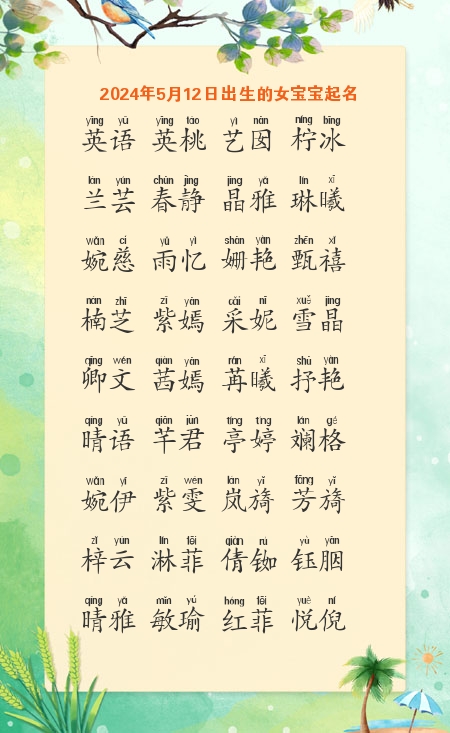 2024年5月12日出生的女宝宝起名
yīng yǔ yīng táo yì nān níng bīng
英语 英桃 艺囡 柠冰
lán yún chūn jìng jīng yǎ lín xī
兰芸 春静 晶雅 琳曦
wǎn cí yǔ yì shān yàn zhēn xǐ
婉慈 雨忆 姗艳 甄禧
nán zhī zǐ yān cǎi nī xuě jīng
楠芝 紫嫣 采妮 雪晶
qīng wén qiàn yān rǎn xī shū yàn
卿文 茜嫣 苒曦 抒艳
qíng yǔ qiān jūn tíng tíng lán gé
晴语 芊君 亭婷 斓格
wǎn yī zǐ wén lán yǐ fāng yǐ
婉伊 紫雯 岚旖 芳旖
zǐ yún lín fēi qiàn rú yù yān
梓云 淋菲 倩铷 钰胭
qíng yǎ mǐn yú hóng fēi yuè ní
晴雅 敏瑜 红菲 悦倪